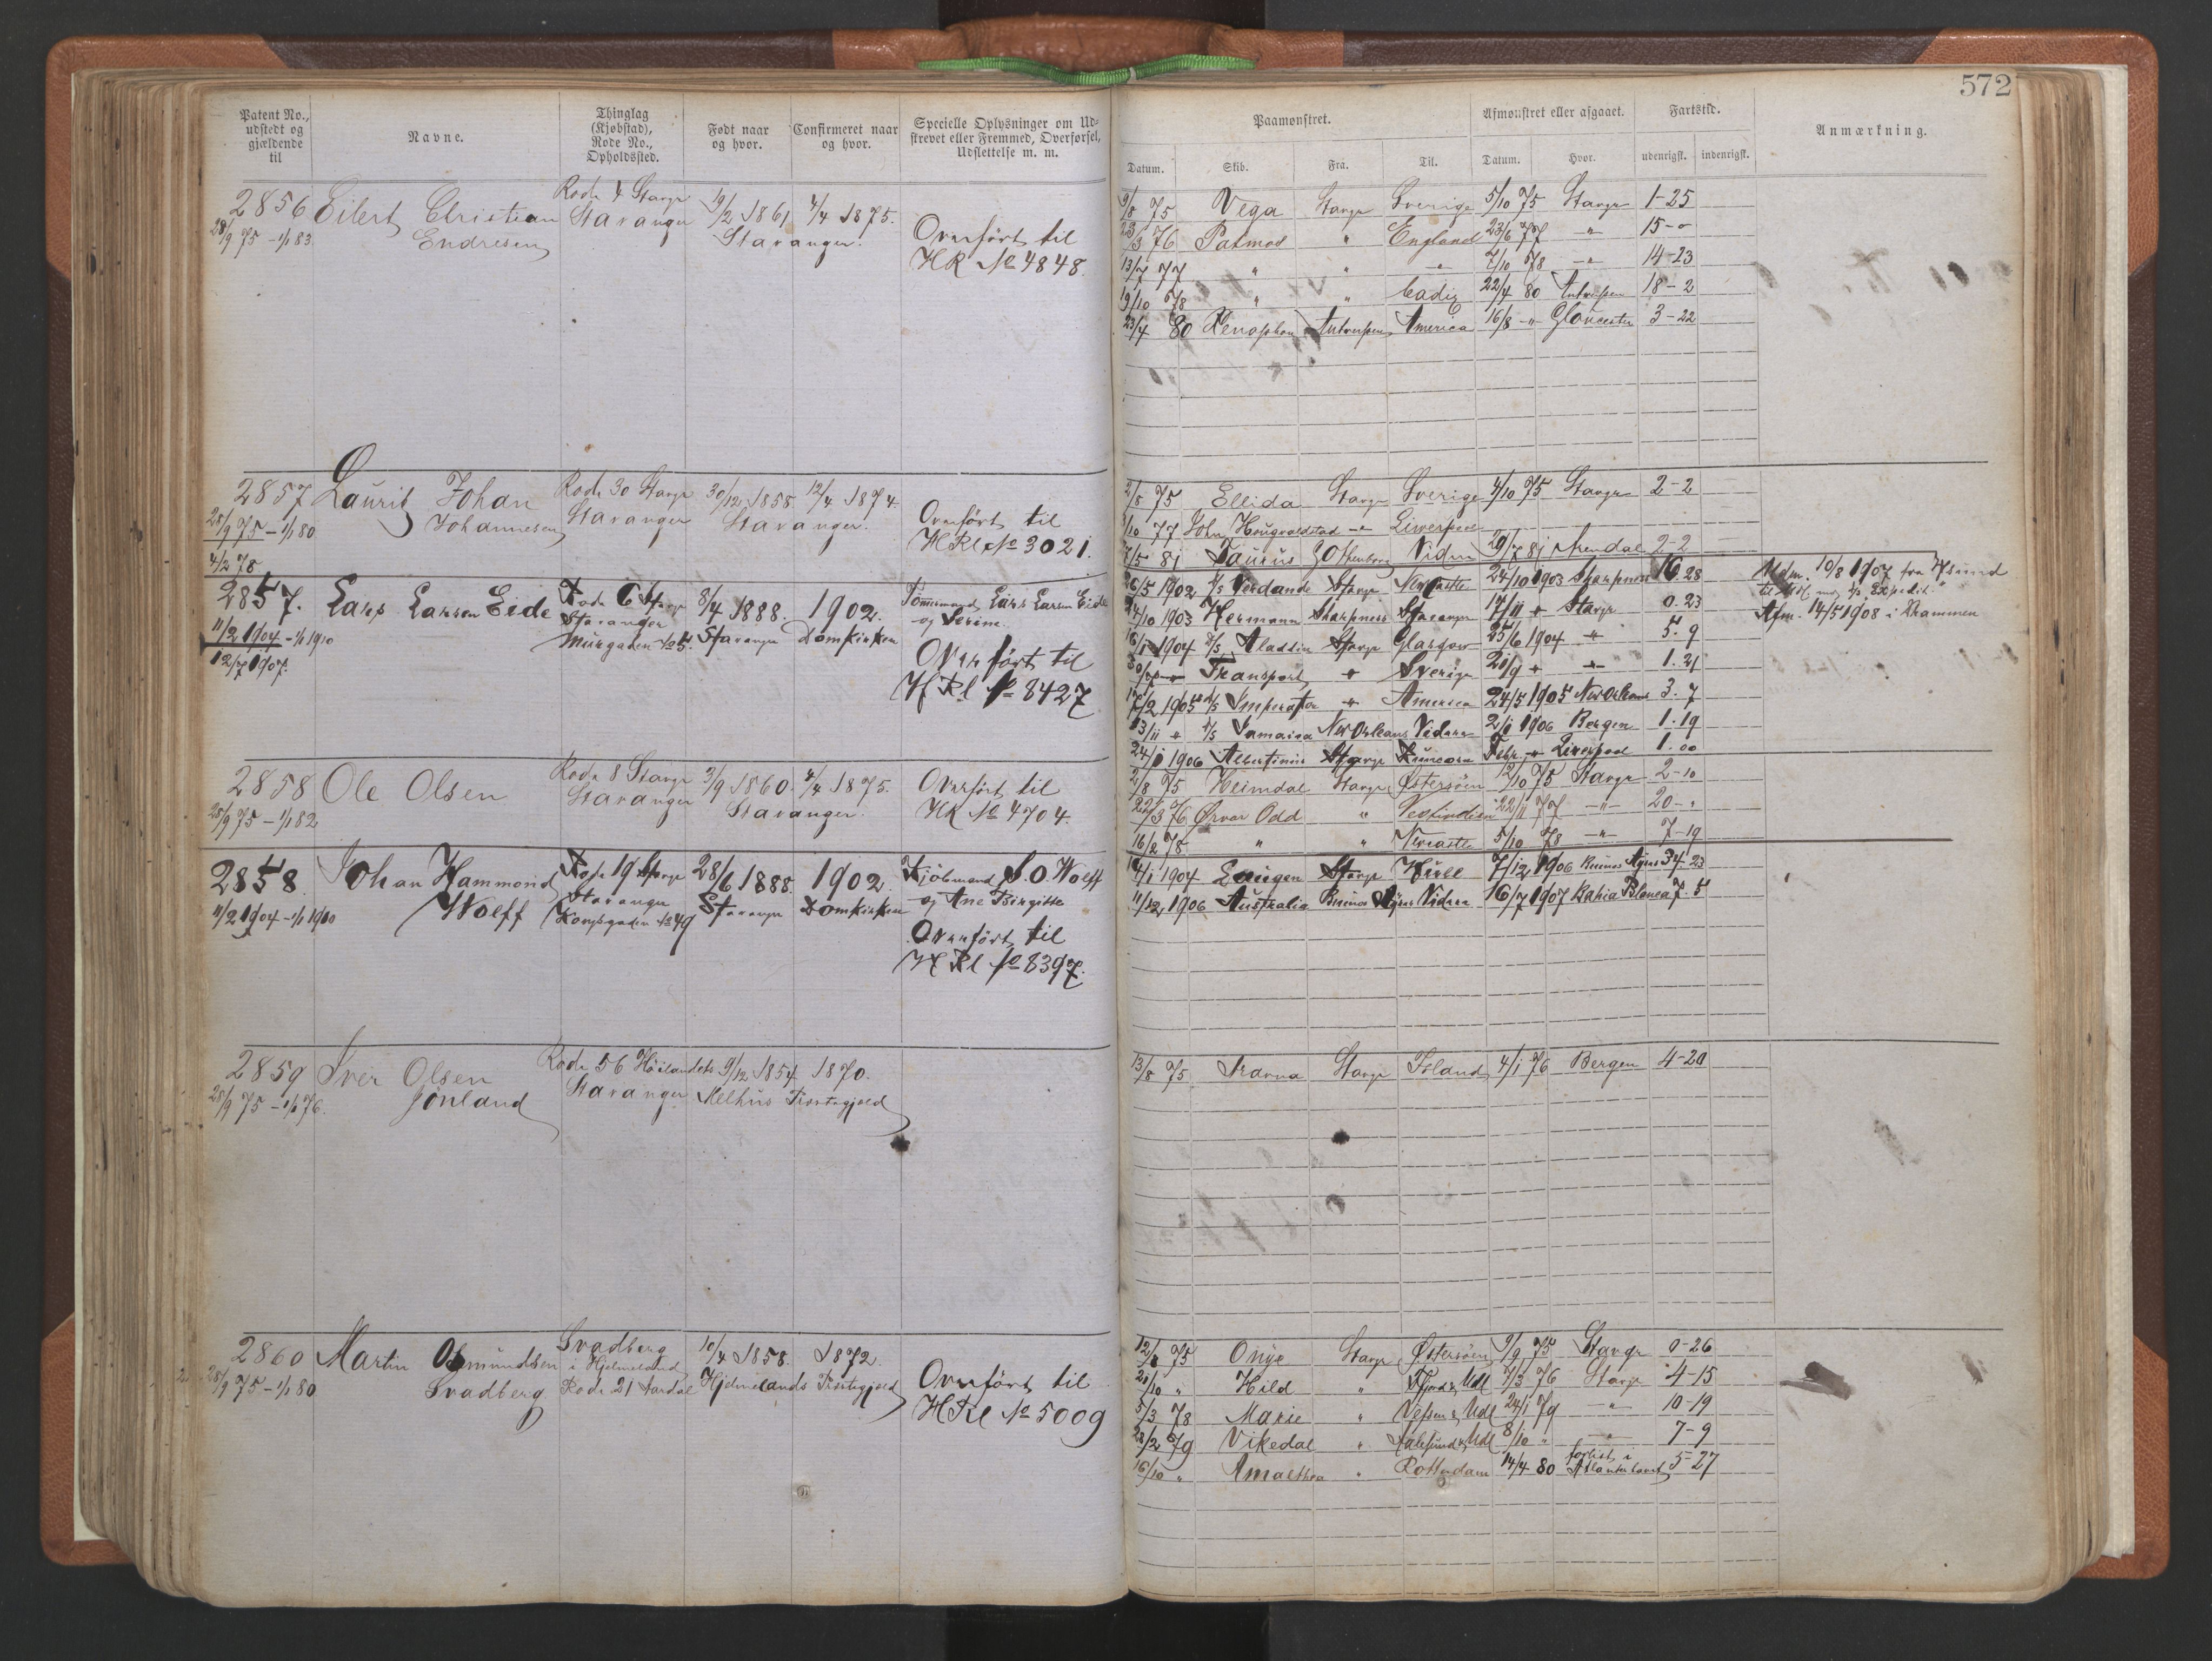 572
Patent No., udstedt og gjældende til
Navne.
Thinglag (Kjøbstad), Rode No., Opholdssted.
Født naar og hvor.
Confirmeret naar og hvor.
Specielle Oplysninger om Udstrevet eller Fremmed, Overførsel, Udslettelse m. m.
Paamønstret.
Afmønstret eller afgaaet.
Fartstid.
Anmærkning.
Datum. Skib. Fra. Til. Datum. Hvor. udenrigsk. indenrigsk.
2856 Eilert Christian Endresen
28/9 75 - 1/1 83
Rode 4 Stavgr Stavanger
19/2 1861 4/4 1875.
Stavanger.
Overført til
HR No 4848.
9/8 75 Vega Stavgr Sverige 5/10 75 Stavgr 1-25
23/3 76 Patmos " England 23/6 77 -"- 15-0
13/7 77 " " -"- 7/10 78 -"- 14-23
19/10 78 " " Cadiz 22/4 80 Antverpen 18-2
23/4 80 Xenophon Antverpen America 16/8 -"- Gloucester 3-22
2857 Laurits Johan Johannesen
28/9 75 - 1/1 80
4/2 78
Rode 30 Stavgr Stavanger
30/12 1858. 12/4 1874.
Stavanger.
Overført til
HRl No 3021.
2/8 75 Ellida Stavgr Sverige 4/10 75 Stavgr 2-2
/10 77 John Haugvaldstad -"- Liverpool
7/5 81 Taurus Gothenborg Viden 29/7 81 Arendal 2-2
2857. Lars Larsen Eide
11/2 1904 - 1/1 1910
12/7 1907.
Rode 6 Stavgr Stavanger
Murgaden No 5.
8/4 1888. Stavanger
1902. Domkirken
Tømmermand Lars Larsen Eide
og Serine.
Overført til
HRl No 8427
26/5 1902 s/s Verdande Stavgr Newcastle 24/10 1903 Sharpness 16.28
24/10 1903 Hermann Sharpness Stavanger 17/11 " Stavgr 0.23
16/1 1904 s/s Aladdin Stavgr Glasgow 25/6 1904 " 5.9
30/7 " Transport " Sverige 21/9 " " 1.21
17/2 1905 s/s Imperator " America 24/5 1905 New Orleans 3.7
13/11 " s/s Jamaica New Orleans Videre 2/1 1906 Bergen 1.19
24/1 1906 Albertinius Stavgr Runcorn Febr " Liverpool 1.00
Udm. 10/8 1907 fra
Afm. 14/5 1908 i Drammen
2858 Ole Olsen
28/9 75 - 1/1 82
Rode 8 Stavgr Stavanger
3/9 1860. 4/4 1875.
Stavanger.
Overført til
HR No 4704.
2/8 75 Heimdal Stavgr Østersøen 12/10 75 Stavgr 2-10
22/3 76 Ørvar Odd " Vestindien 22/11 77 -"- 20-"
16/2 78 " " Newcastle 5/10 78 -"- 7-19
2858. Johan Hammond Wolff
11/2 1904 - 1/1 1910
Rode 19 Stavgr Stavanger
Kongsgaden No 49
28/6 1888. Stavanger
1902. Domkirken
Kjøbmand S. O. Wolff
og Ane Birgitte
Overført til
HRl No 8397.
14/1 1904 Lungen Stavgr Hull 7/12 1906 Buenos Ayres 34-23
11/12 1906 Australia Buenos Ayres Videre 16/7 1907 Bahia Blanca 7.5
2859 Iver Olsen Jonland
28/9 75 - 1/1 76.
Rode 56 Høilandets Stavanger
9/12 1854. 1870.
Melhus Præstegjeld
13/8 75 Navna Stavgr Island 4/1 76 Bergen 4-20
2860 Martin Osmundsen Svadberg
28/9 75 - 1/1 80
Svadberg i Hjelmeland
Rode 21 Aardal
10/4 1858. 1872.
Hjelmelands Præstegjeld
Overført til
HRl No 5009
12/8 75 Onye Stavgr Østersøen 9/9 75 Stavgr 0-26
20/10 " Hild " Fjord & Udl 7/3 76 Stavgr 4-15
5/3 78 Marie " Vefsen & Udl 24/1 79 -"- 10-19
28/2 79 Vikedal " Aalesund & Udl 8/10 " -"- 7-9
16/10 " Amalthea " Rotterdam 14/4 80 forlist i Atlanterhavet 5-27